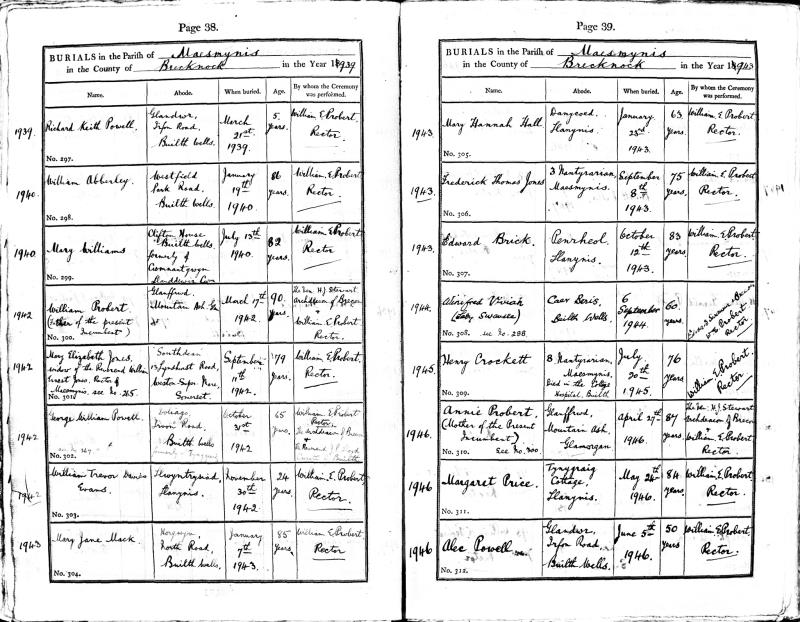 Page 38.
BURIALS in the Parish of Maesmynis
in the County of Brecknock in the Year 1939
Name. Abode. When buried. Age. By whom the Ceremony was performed.
1939.
Richard Keith Powell.
No. 297.
Glandwr,
Irfon Road,
Builth Wells.
March
21st
1939.
5.
years.
William E. Probert
Rector.
1940.
William Abberley.
No. 298.
Westfield
Park Road,
Builth Wells.
January
19th
1940.
86
years.
William E. Probert
Rector.
1940
Mary Williams
No. 299.
Clifton House
Builth Wells.
formerly of
July 13th
1940.
82
years.
William E. Probert
Rector
1942
William Probert
(Father of the present
Incumbent)
No. 300.
Glanffrwd,
Mountain Ash.
March 17th
1942.
90.
years.
The Ven. H.J. Stewart
Archdeacon of Brecon
+
William E. Probert
Rector.
1942
Mary Elizabeth Jones,
widow of the Reverend William
Ernest Jones, Rector of
Maesmynis, see No. 265.
No. 301.
Southdean
Lyndhurst Road,
Weston Super Mare,
Somerset.
September
11th
1942.
79
years.
William E. Probert,
Rector.
1942
George William Powell.
No. 302.
Irvon Road,
Builth Wells
October
31st
1942
65
years.
William E. Probert
Rector.
The Archdeacon of Brecon
1942
William Trevor Davies
Evans.
No. 303.
Llwyntrysiad,
Llanynis.
November
30th
1942.
24
years.
William E. Probert,
Rector.
1943
Mary Jane Mack.
No. 304.
North Road,
Builth Wells.
January
7th
1943.
85
years.
William E. Probert
Rector
Page 39.
BURIALS in the Parish of Maesmynis
in the County of Brecknock in the Year 1943
Name. Abode. When buried. Age. By whom the Ceremony was performed.
1943
Mary Hannah Hall
No. 305.
Danycoed.
Llanynis.
January
23rd
1943.
63
years.
William E. Probert
Rector.
1943.
Frederick Thomas Jones
No. 306.
3 Nantyrarian,
Maesmynis.
September
8th
1943.
75
years.
William E. Probert
Rector.
1943.
Edward Brick.
No. 307.
Penrheol.
Llanynis.
October
12th
1943.
83
years.
William E. Probert
Rector.
1944.
Winifred Vivian
(Lady Swansea)
No. 308. see No. 288.
Caer Beris,
Builth Wells.
6
September
1944.
60.
years.
Probert
Rector
1945
Henry Crockett
No. 309.
8 Nantyrarian,
Maesmynis.
Died in the Cottage
Hospital, Builth
July
20th
1945.
76
years
William E. Probert.
Rector.
1946.
Annie Probert,
(Mother of the Present
Incumbent)
No. 310. See No. 300
Glanffrwd,
Mountain Ash,
Glamorgan
April 27th
1946.
87
years
The Ven. H.J. Stewart
Archdeacon of Brecon
+
William E. Probert
Rector.
1946
Margaret Price.
No. 311.
Tynygraig
Cottage,
Llanynis.
May 24th
1946.
84
years.
William E. Probert
Rector.
1946
Alec Powell
No. 312.
Glandwr,
Irfon Road,
Builth Wells.
June 5th
1946.
50
years
William E. Probert,
Rector.